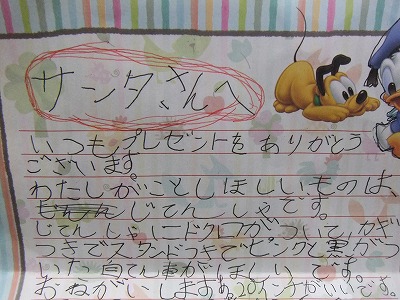 サンタさんへ
いつもプレゼントをありがとう
ございます。
わたしがことしほしいものは、
じてんしゃです。
じてんしゃにドクロがついて、カギ
つきでスタンドつきでピンクと黒がつ
いた自てん車がほしいです。
おねがいします。20インチがいいです。